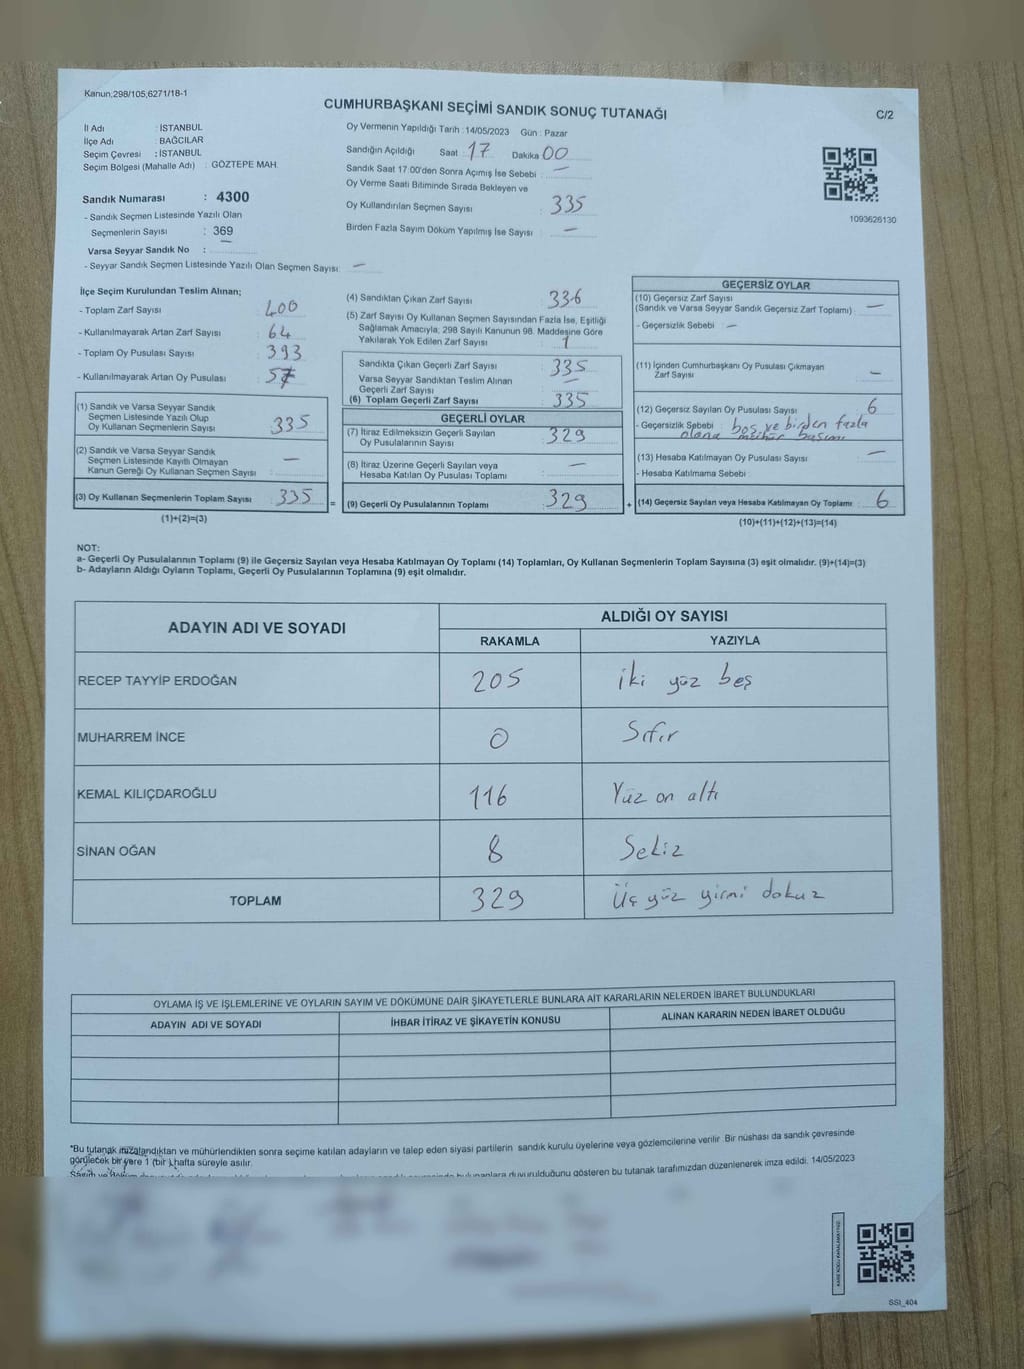 Kanun;298/105;6271/18-1
CUMHURBAŞKANI SEÇİMİ SANDIK SONUÇ TUTANAĞI
C/2
İl Adı : İSTANBUL
İlçe Adı : BAĞCILAR
Seçim Çevresi : İSTANBUL
Seçim Bölgesi (Mahalle Adı) : GÖZTEPE MAH.
Sandık Numarası : 4300
- Sandık Seçmen Listesinde Yazılı Olan
Seçmenlerin Sayısı : 369
Varsa Seyyar Sandık No : —
- Seyyar Sandık Seçmen Listesinde Yazılı Olan Seçmen Sayısı: —
Oy Vermenin Yapıldığı Tarih : 14/05/2023 Gün : Pazar
Sandığın Açıldığı Saat : 17 Dakika 00
Sandık Saat 17:00'den Sonra Açımış İse Sebebi : —
Oy Verme Saati Bitiminde Sırada Bekleyen ve
Oy Kullandırılan Seçmen Sayısı : 335
Birden Fazla Sayım Döküm Yapılmış İse Sayısı : —
1093626130
İlçe Seçim Kurulundan Teslim Alınan;
- Toplam Zarf Sayısı : 400
- Kullanılmayarak Artan Zarf Sayısı : 64
- Toplam Oy Pusulası Sayısı : 393
- Kullanılmayarak Artan Oy Pusulası : 57
(1) Sandık ve Varsa Seyyar Sandık
Seçmen Listesinde Yazılı Olup
Oy Kullanan Seçmenlerin Sayısı : 335
(2) Sandık ve Varsa Seyyar Sandık
Seçmen Listesinde Kayıtlı Olmayan
Kanun Gereği Oy Kullanan Seçmen Sayısı : —
(3) Oy Kullanan Seçmenlerin Toplam Sayısı : 335 =
(1)+(2)=(3)
(4) Sandıktan Çıkan Zarf Sayısı : 336
(5) Zarf Sayısı Oy Kullanan Seçmen Sayısından Fazla İse, Eşitliği
Sağlamak Amacıyla; 298 Sayılı Kanunun 98. Maddesine Göre
Yakılarak Yok Edilen Zarf Sayısı : 1
Sandıkta Çıkan Geçerli Zarf Sayısı : 335
Varsa Seyyar Sandıktan Teslim Alınan
Geçerli Zarf Sayısı : —
(6) Toplam Geçerli Zarf Sayısı : 335
GEÇERLİ OYLAR
(7) İtiraz Edilmeksizin Geçerli Sayılan
Oy Pusulalarının Sayısı : 329
(8) İtiraz Üzerine Geçerli Sayılan veya
Hesaba Katılan Oy Pusulası Toplamı : —
(9) Geçerli Oy Pusulalarının Toplamı : 329 +
GEÇERSİZ OYLAR
(10) Geçersiz Zarf Sayısı
(Sandık ve Varsa Seyyar Sandık Geçersiz Zarf Toplamı) : —
- Geçersizlik Sebebi : —
(11) İçinden Cumhurbaşkanı Oy Pusulası Çıkmayan
Zarf Sayısı : —
(12) Geçersiz Sayılan Oy Pusulası Sayısı : 6
- Geçersizlik Sebebi : boş ve birden fazla
olana mühür basımı
(13) Hesaba Katılmayan Oy Pusulası Sayısı : —
- Hesaba Katılmama Sebebi :
(14) Geçersiz Sayılan veya Hesaba Katılmayan Oy Toplamı : 6
(10)+(11)+(12)+(13)=(14)
NOT:
a- Geçerli Oy Pusulalarının Toplamı (9) ile Geçersiz Sayılan veya Hesaba Katılmayan Oy Toplamı (14) Toplamları, Oy Kullanan Seçmenlerin Toplam Sayısına (3) eşit olmalıdır. (9)+(14)=(3)
b- Adayların Aldığı Oyların Toplamı, Geçerli Oy Pusulalarının Toplamına (9) eşit olmalıdır.
ADAYIN ADI VE SOYADI ALDIĞI OY SAYISI
RAKAMLA YAZIYLA
RECEP TAYYİP ERDOĞAN 205 iki yüz beş
MUHARREM İNCE 0 Sıfır
KEMAL KILIÇDAROĞLU 116 Yüz on altı
SİNAN OĞAN 8 Sekiz
TOPLAM 329 Üç yüz yirmi dokuz
OYLAMA İŞ VE İŞLEMLERİNE VE OYLARIN SAYIM VE DÖKÜMÜNE DAİR ŞİKAYETLERLE BUNLARA AİT KARARLARIN NELERDEN İBARET BULUNDUKLARI
ADAYIN ADI VE SOYADI İHBAR İTİRAZ VE ŞİKAYETİN KONUSU ALINAN KARARIN NEDEN İBARET OLDUĞU
*Bu tutanak imzalandıktan ve mühürlendikten sonra seçime katılan adayların ve talep eden siyasi partilerin sandık kurulu üyelerine veya gözlemcilerine verilir. Bir nüshası da sandık çevresinde
görülecek bir yere 1 (bir) hafta süreyle asılır.
bulunanlara duyurulduğunu gösteren bu tutanak tarafımızdan düzenlenerek imza edildi. 14/05/2023
SSI_404